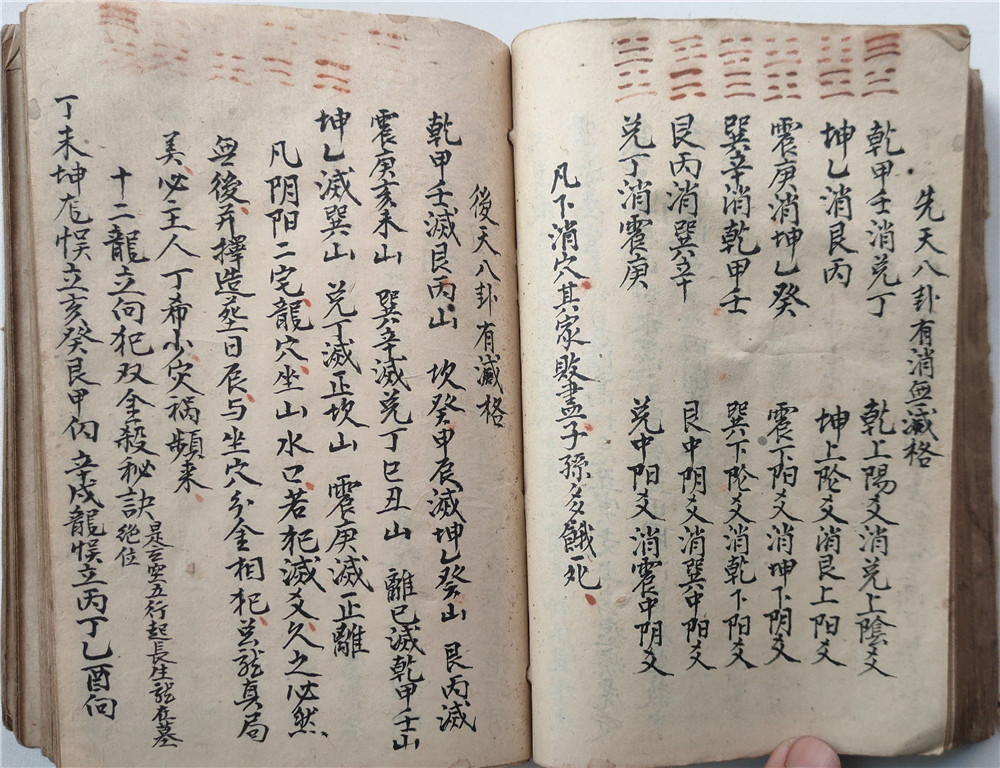 先天八卦有消無滅格
乾甲壬消兑丁 乾上陽爻消兑上陰爻
坤乙消艮丙 坤上阴爻消艮上阳爻
震庚消坤乙癸 震下阳爻消坤下阴爻
巽辛消乾甲壬 巽下阴爻消乾下阳爻
艮丙消巽辛 艮中阴爻消巽中阳爻
兑丁消震庚 兑中阳爻消震中阴爻
凡下消穴其家敗盡子孫多餓死
後天八卦有滅格
乾甲壬滅艮丙山 坎癸甲辰滅坤乙癸山 艮丙滅
震庚亥未山 巽辛滅兑丁巳丑山 離巳滅乾甲壬山
坤乙滅巽山 兑丁滅正坎山 震庚滅正離
凡阴阳二宅龍穴坐山水口若犯滅爻久之必然
無後并擇造塟日辰与坐穴分金相犯总龙真局
美必主人丁希小灾禍頻来
十二龍立向犯双金殺秘訣 是玄空五行起長生龙在墓
絶位
丁未坤龙悮立亥癸艮甲向 辛戌龍悮立丙丁乙酉向